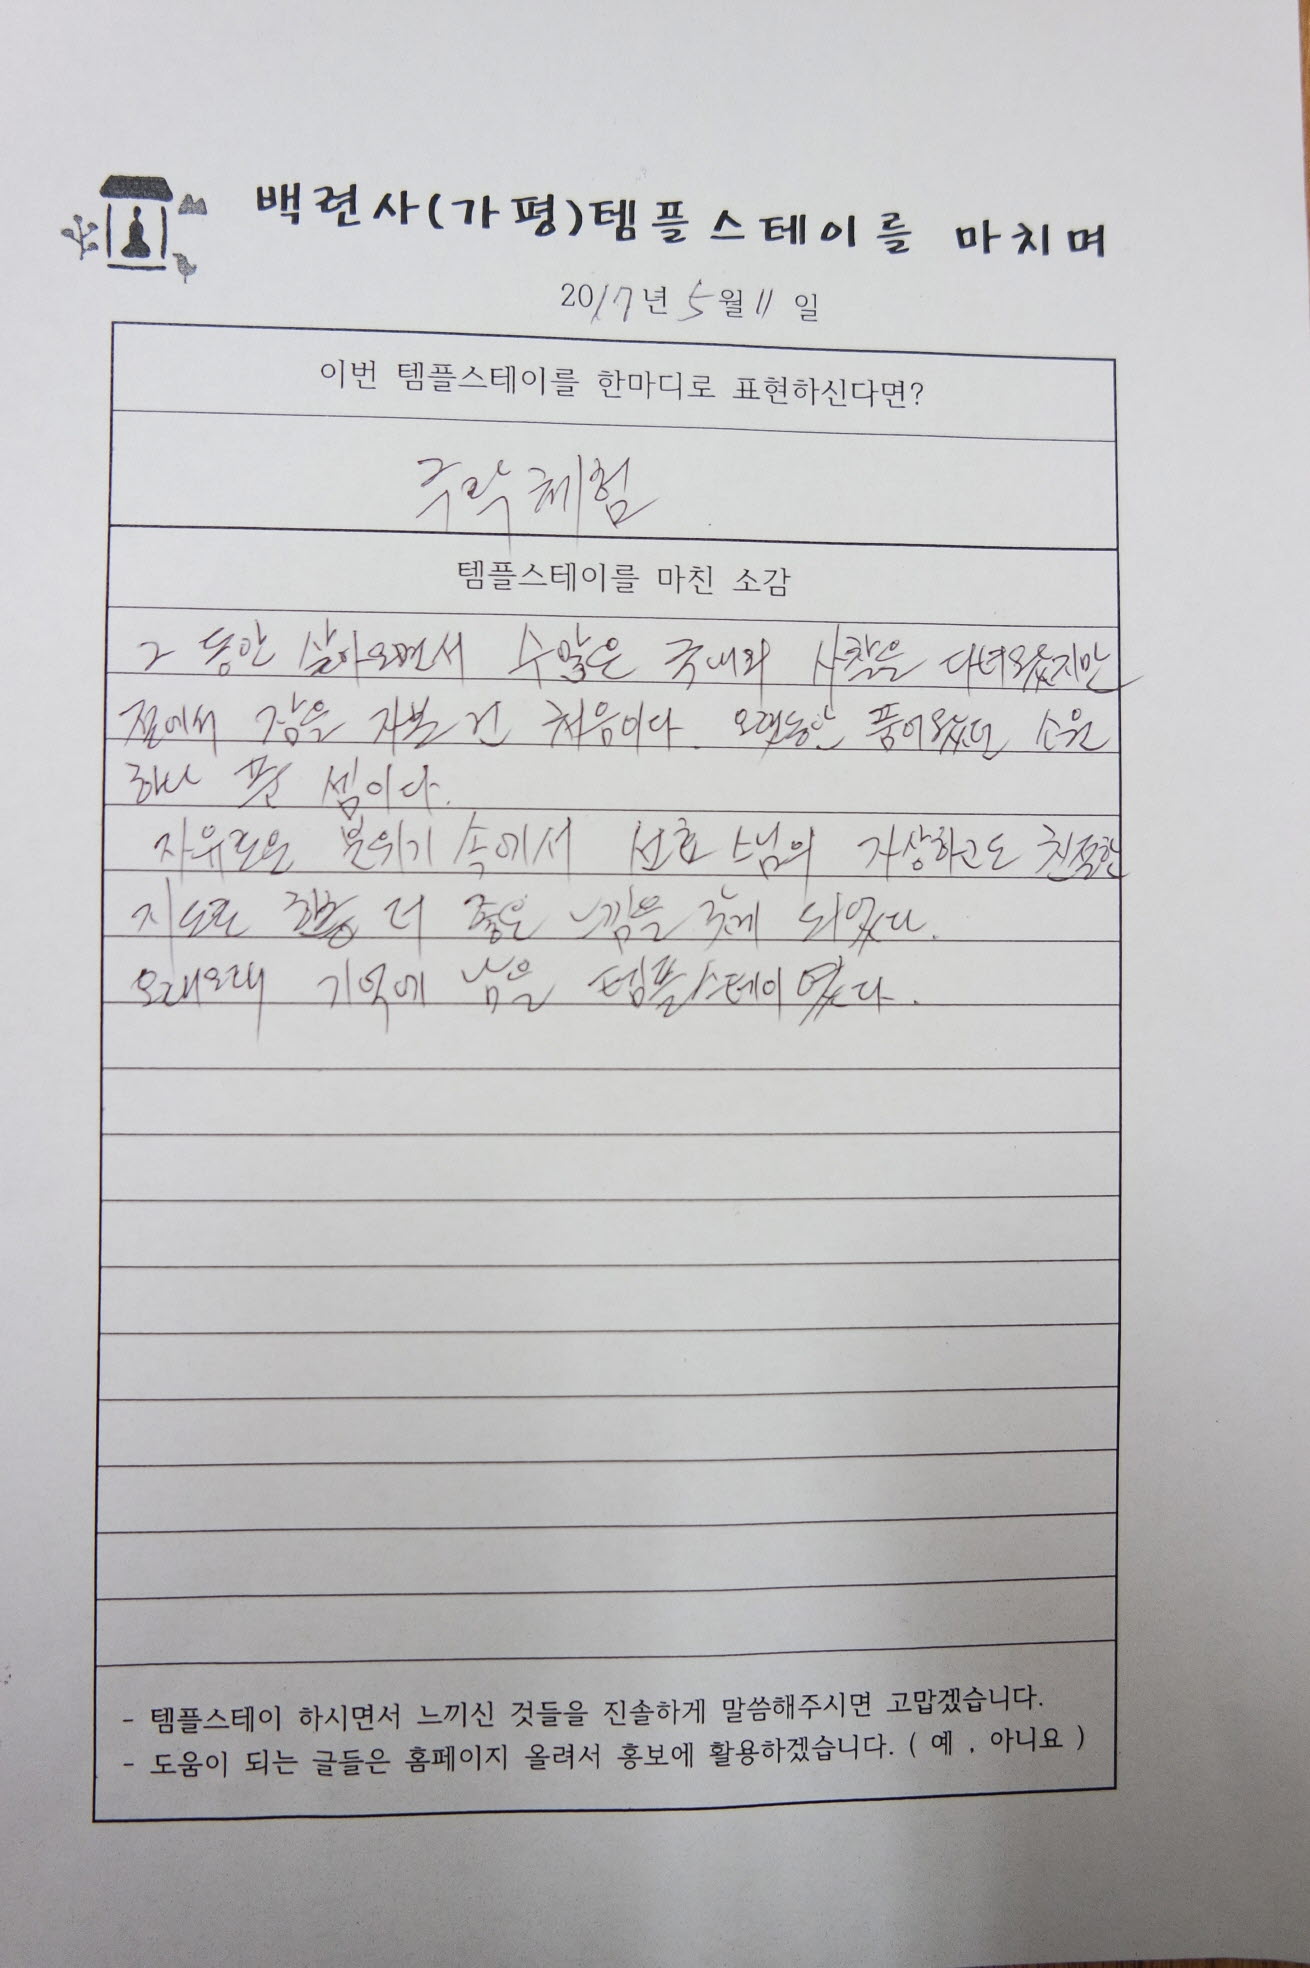 백련사(가평)템플스테이를 마치며
2017년 5월 11일
이번 템플스테이를 한마디로 표현하신다면?
체험
템플스테이를 마친 소감
그 동안 살아오면서 수많은 국내외 사찰을 다녀왔지만
절에서 잠을 자본 건 처음이다. 오랫동안 품어왔던 소원
하나 푼 셈이다.
자유로운 분위기 속에서 선효 스님의 자상하고도 친절한
지도로 한층 더 좋은 느낌을 갖게 되었다.
오래오래 기억에 남을 템플스테이였다.
- 템플스테이 하시면서 느끼신 것들을 진솔하게 말씀해주시면 고맙겠습니다.
- 도움이 되는 글들은 홈페이지 올려서 홍보에 활용하겠습니다. ( 예 , 아니요 )